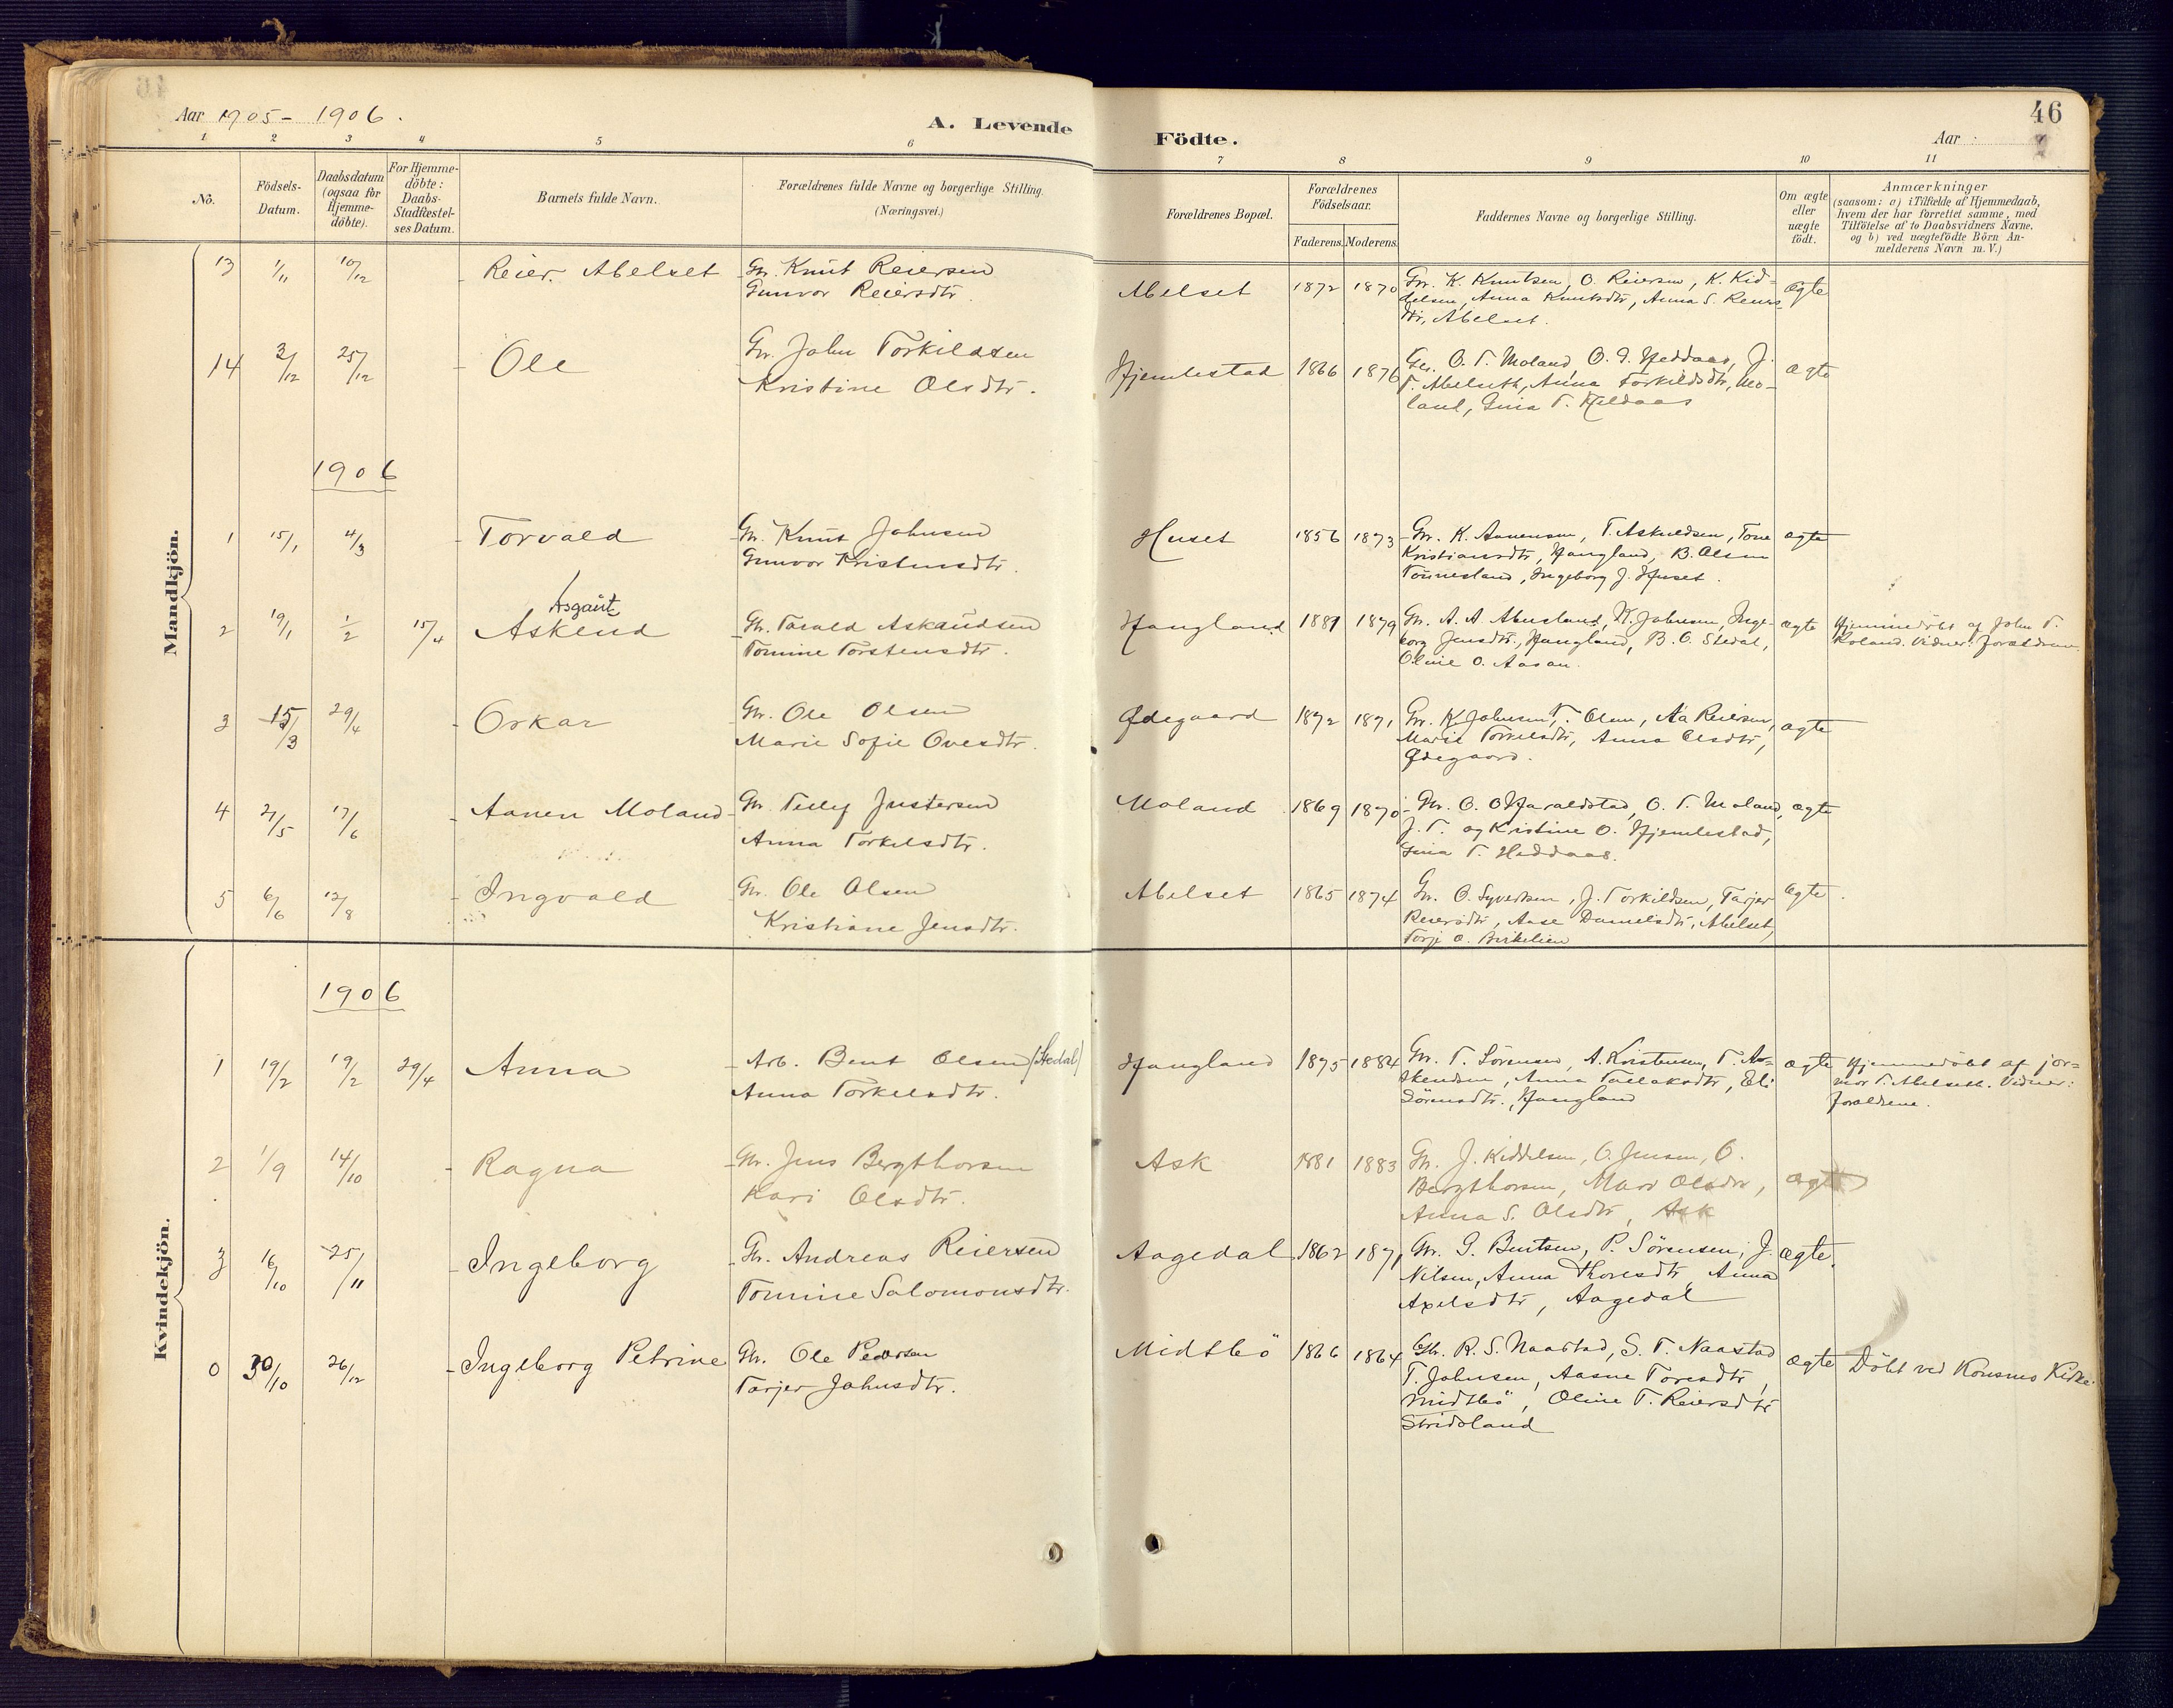 46
Aar 1905 - 1906.
A. Levende Födte.
Aar
1 2 3 4 5 6 7 8 9 10 11
No.
Födsels-
Datum.
Daabsdatum
(ogsaa for
Hjemme-
döbte).
For Hjemme-
döbte:
Daabs-
Stadfæstel-
ses Datum.
Barnets fulde Navn.
Forældrenes fulde Navne og borgerlige Stilling.
(Næringsvei.)
Forældrenes Bopæl.
Forældrenes
Födselsaar.
Faderens. Moderens.
Faddernes Navne og borgerlige Stilling.
Om ægte
eller
uægte
födt.
Anmærkninger
(saasom: a) i Tilfælde af Hjemmedaab,
hvem der har forrettet samme, med
Tilföielse af to Daabsvidners Navne,
og b) ved uægtefödte Börn An-
melderens Navn m. V.)
Mandkjön.
13 1/11 10/12 - Reier Abelset
Gr. Knut Reiersen
Gunvor Reiersdtr.
Abelset 1872 1870
Gr. K. Knutsen, O. Reiersen, K. Kid-
delsen, Anna Knutsdtr, Anna S. Reiers-
dtr, Abelset.
ægte
14 3/12 25/12 - Ole
Gr. John Torkildsen
Kristine Olsdtr.
Hjemlestad 1866 1876
Gr. O. T. Moland, O. G. Heddaas, J.
T. Abelseth, Anna Torkildsdtr, Mo-
land, Gina T. Heddaas
ægte
1906
1 15/1 4/3 - Torvald
Gr. Knut Johnsen
Gunvor Kristensdtr.
Huset 1856 1873
Gr. K. Aanensen, T. Askildsen, Tone
Kristiansdtr, Haugland, B. Olsen
Tönnesland, Ingeborg J. Huset.
ægte
Asgaut
2 19/1 1/2 15/4 Askend
Gr. Tarald Askaudsen
Tomine Torstensdtr.
Haugland 1881 1879
Gr. A. A. Abusland, K. Johnsen, Inge-
borg Jensdtr., Haugland, B. O. Stedal,
Oline O. Aasan.
ægte
Hjemmedöbt af John T.
Roland. Vidner: Forældrene.
3 15/3 29/4 - Oskar
Gr. Ole Olsen
Marie Sofie Ovesdtr.
Ødegaard 1872 1871
Gr. K. Johnsen, T. Olsen, Aa Reiersen,
Marie Torkelsdtr, Anna Olsdtr,
Ødegaard.
ægte
4 21/5 17/6 - Aanen Moland
Gr. Tellef Justersen
Anna Torkelsdtr.
Moland 1869 1870
Gr. O. O Haraldstad, O. T. Moland,
J. T. og Kristine O. Hjemlestad,
Gina T. Heddaas.
ægte
5 6/6 12/8 - Ingvald
Gr. Ole Olsen
Kristiane Jensdtr.
Abelset 1865 1874
Gr. O. Syvertsen, J. Torkildsen, Tarjer
Reiersdtr, Aase Danielsdtr, Abelset,
Torje O. Birkelien
ægte.
Kvindekjön.
1906
1 19/2 19/2 29/4 Anna
- Arb. Bent Olsen (Stedal)
Anna Torkelsdtr.
Haugland 1875 1884
Gr. T. Sörensen, A. Kristensen, T. As-
kendsen, Anna Tallaksdtr, Eli
Sörensdtr., Haugland
ægte
Hjemmedöbt af jor-
mor T. Abelseth. Vidner:
Forældrene.
2 1/9 14/10 - Ragna
Gr. Jens Bergthorsen
Kari Olsdtr.
Ask 1881 1883
Gr. J. Kiddelsen, O. Jensen, O.
Bergthorsen, Mari Olsdtr,
Anna S. Olsdtr, Ask
ægte
3 16/10 25/11 - Ingeborg
Gr. Andreas Reiersen
Tomine Salomonsdtr.
Aagedal 1862 1871
Gr. G. Bentsen, P. Sörensen, J.
Nilsen, Anna Thoresdtr, Anna
Axelsdtr, Aagedal
ægte.
0 30/10 26/12 - Ingeborg Petrine
Gr. Ole Pedersen
Tarjer Johnsdtr.
Midtbö 1866 1864
Gr. R. S. Naastad, S. T. Naastad
T. Johnsen, Aasne Toresdtr,
Midtbö, Oline T. Reiersdtr
Stridsland
ægte
Döbt ved Konsmo Kirke.